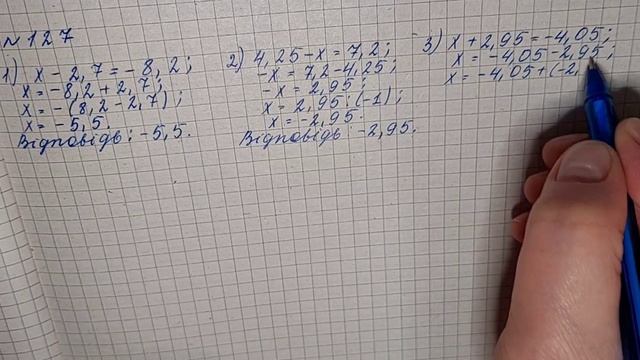 №127
1) x - 2,7 = -8,2;
x = -8,2 + 2,7;
x = -(8,2 - 2,7);
x = -5,5.
Відповідь: -5,5.
2) 4,25 - x = 7,2;
-x = 7,2 - 4,25;
-x = 2,95;
x = 2,95 : (-1);
x = -2,95.
Відповідь: -2,95.
3) x + 2,95 = -4,05;
x = -4,05 - 2,95;
x = -4,05 + (-2,